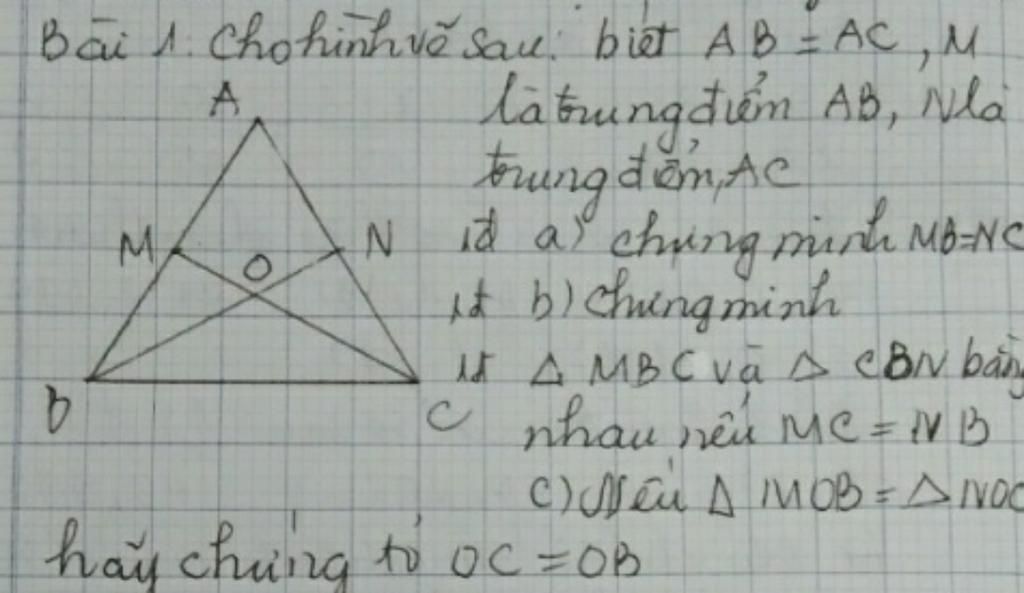 Bài 1. Cho hình vẽ sau: biết AB = AC, M
là trung điểm AB, N là
trung điểm AC
A
M
O
N
B
C
1đ a) chứng minh MB=NC
1đ b) chứng minh
1đ Δ MBC và Δ CBN bằng
nhau nếu MC = NB
c) Nếu Δ MOB = Δ NOC
hãy chứng tỏ OC = OB